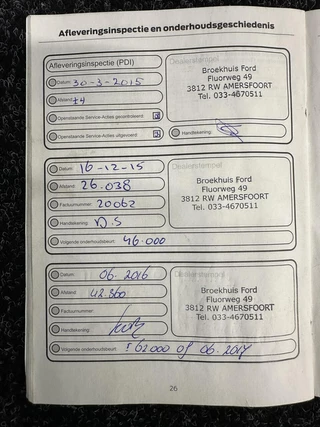 Afleveringsinspectie en onderhoudsgeschiedenis
Afleveringsinspectie (PDI)
Dealerstempel
Datum: 30-3-2015
Afstand:
Openstaande Service-Acties gecontroleerd
Openstaande Service-Acties uitgevoerd
Broekhuis Ford
Fluorweg 49
3812 RW AMERSFOORT
Tel. 033-4670511
Handtekening:
Datum: 16-12-15
Afstand: 26.038
Factuurnummer: 20062
Handtekening: D.S
Dealerstempel
Broekhuis Ford
Fluorweg 49
3812 RW AMERSFOORT
Tel. 033-4670511
Volgende onderhoudsbeurt: 46.000
Datum: 06.2016
Afstand: 42.360
Factuurnummer:
Handtekening:
Dealerstempel
Broekhuis Ford
Fluorweg 49
3812 RW AMERSFOORT
Tel. 033-4670511
Volgende onderhoudsbeurt: 62000 of 06.2017
26